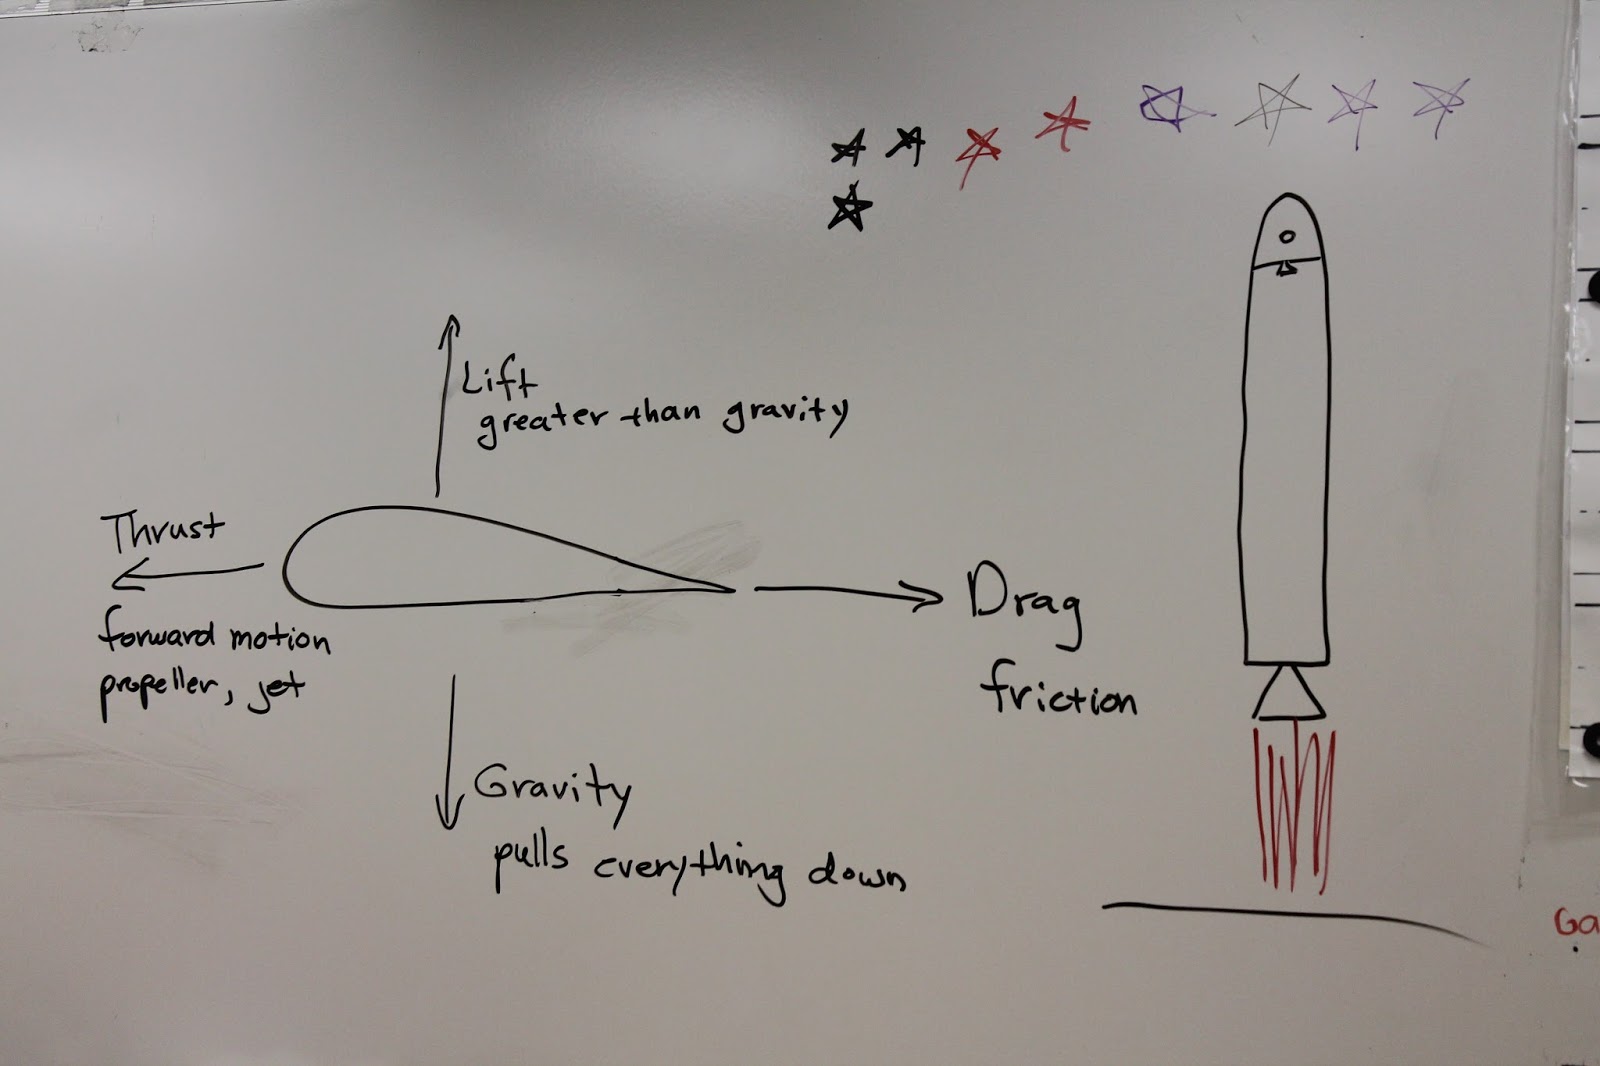 Lift
greater than gravity
Thrust
forward motion
propeller, jet
Drag
friction
Gravity
pulls everything down
Ga